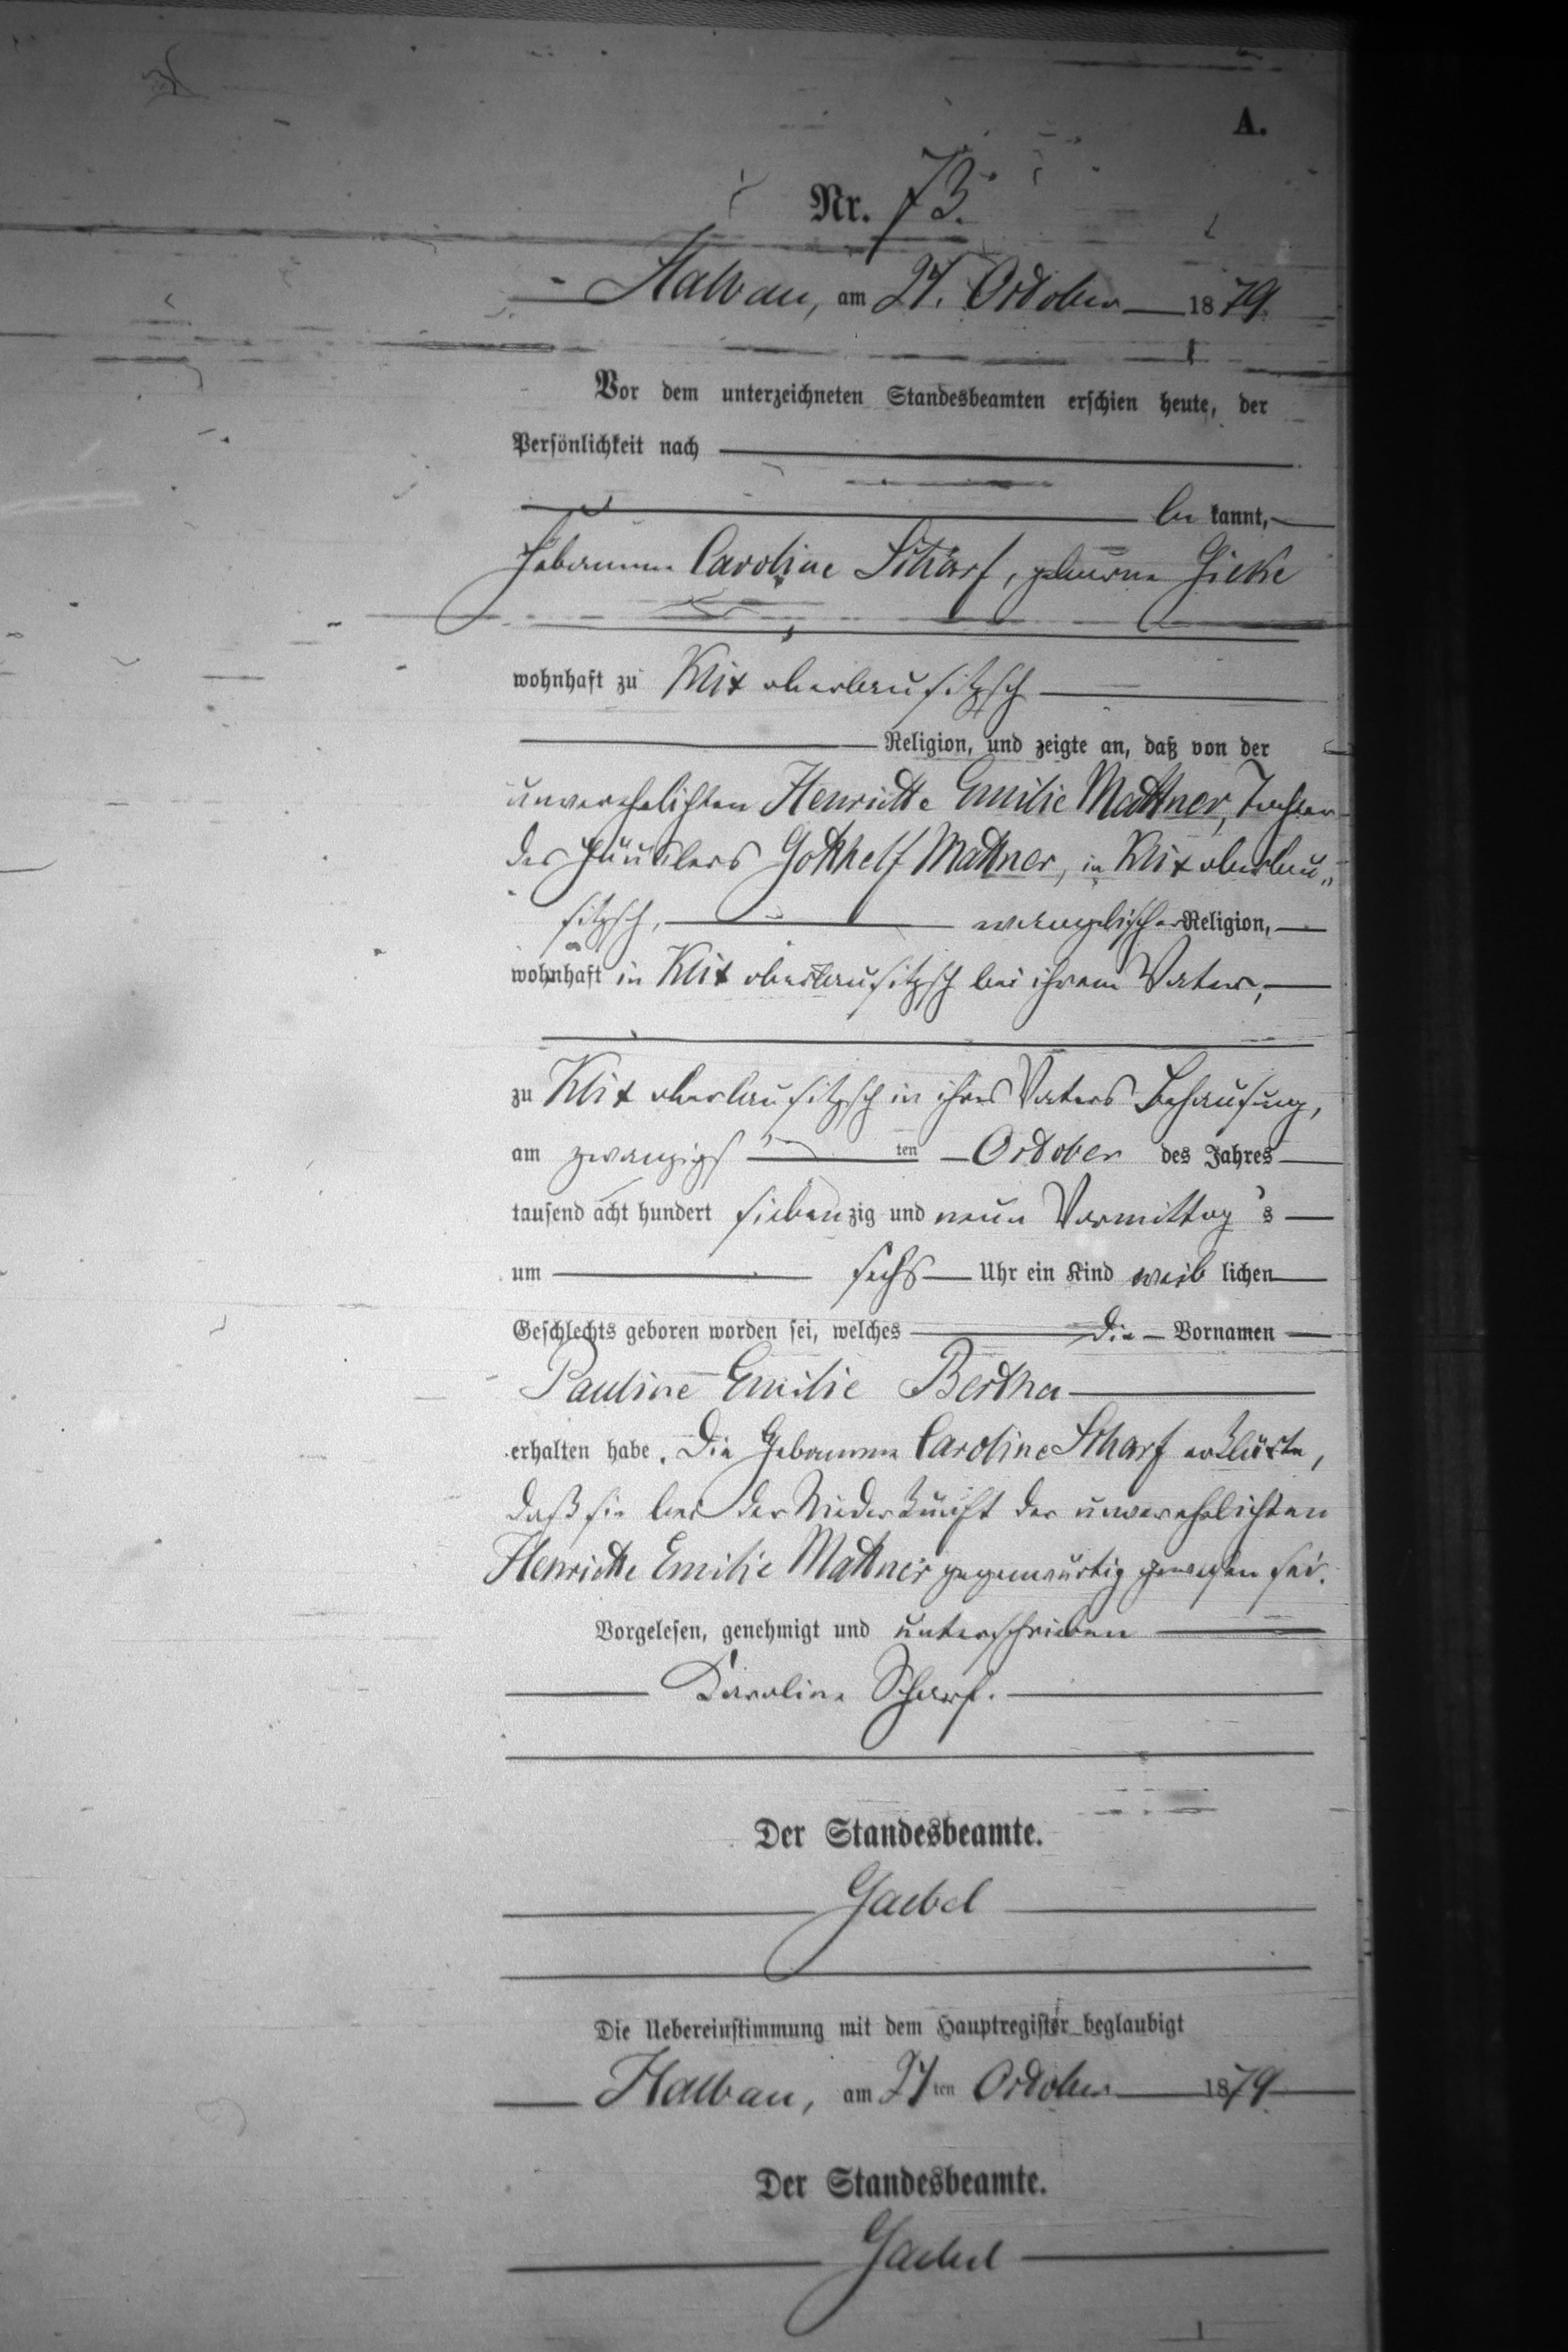 A.
Nr. 73.
Halbau, am 27. October 1879.
Vor dem unterzeichneten Standesbeamten erschien heute, der
Persönlichkeit nach
be kannt,
Hebamme Caroline Scharf, geborne
wohnhaft zu Klix oberlausitzsch
Religion, und zeigte an, daß von der
unverehelichten Henriette Emilie Mattner, Tochter
des Häuslers Gotthelf Mattner, in Klix oberlau„
sitzsch, evangelischer Religion,
wohnhaft in Klix oberlausitzsch bei ihrem Vater,
zu Klix oberlausitzsch in ihres Vaters Behausung,
am zwanzigsten October des Jahres
tausend acht hundert siebenzig und neun Vormittag's
um sechs Uhr ein Kind weiblichen
Geschlechts geboren worden sei, welches die Vornamen
Pauline Emilie Bertha
erhalten habe. Die Hebamme Caroline Scharf erklärte,
daß sie bei der Niederkunft der unverehelichten
Henriette Emilie Mattner gegenwärtig gewesen sei.
Vorgelesen, genehmigt und unterschrieben
Karoline Scharf.
Der Standesbeamte.
Gaebel
Die Uebereinstimmung mit dem Hauptregister beglaubigt
Halbau, am 27ten October 1879.
Der Standesbeamte.
Gaebel